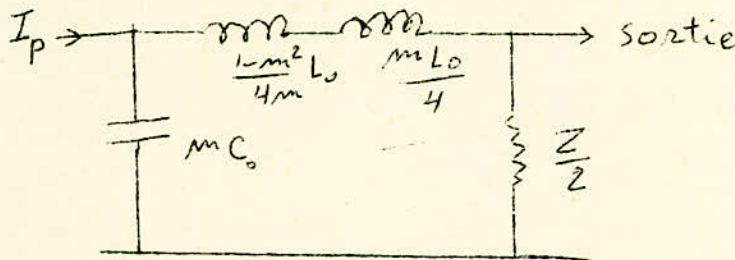 I_p sortie
1-m²/4m L₀ mL₀/4
mC₀ Z/2